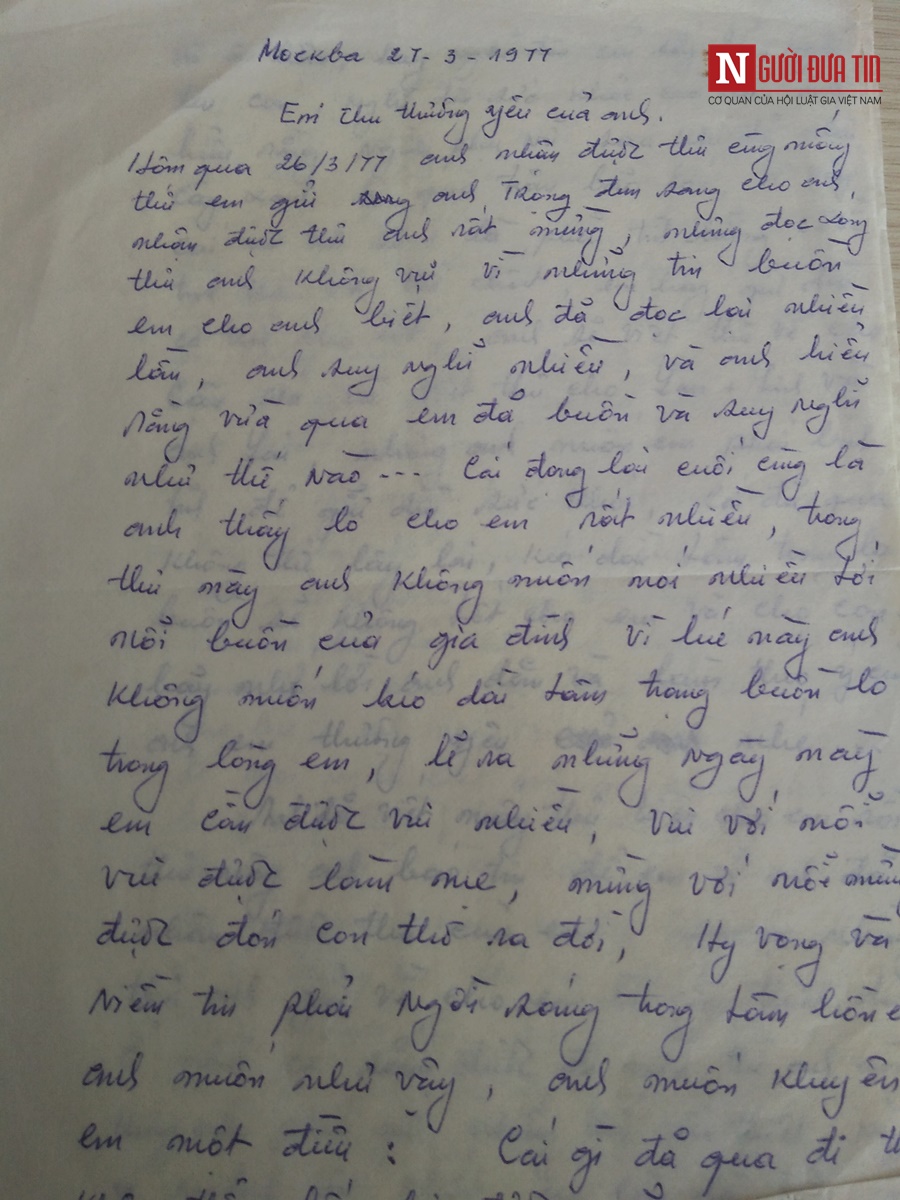 NGƯỜI ĐƯA TIN
CƠ QUAN CỦA HỘI LUẬT GIA VIỆT NAM
Москва 27-3-1977
Em Thu thương yêu của anh.
Hôm qua 26/3/77 anh nhận được thư cùng
thư em gửi anh Trọng đem sang cho anh,
nhận được thư anh rất mừng, nhưng đọc xong
thư anh không vui vì những tin buồn
em cho anh biết, anh đã đọc lại nhiều
lần, anh suy nghĩ nhiều, và anh hiểu
rằng vừa qua em đã buồn và suy nghĩ
như thế nào --- Cái đọng lại cuối cùng là
anh thấy lo cho em rất nhiều, trong
thư này anh không muốn nói nhiều tới
nỗi buồn của gia đình vì lúc này anh
không muốn kéo dài tâm trạng buồn lo
trong lòng em, lẽ ra những ngày này
em cần được vui nhiều, vui với nỗi
vui được làm mẹ, mừng với nỗi mừng
được đón con thơ ra đời, Hy vọng và
niềm tin phải ngời sáng trong tâm hồn e
anh muốn như vậy, anh muốn khuyên
em một điều : Cái gì đã qua đi th